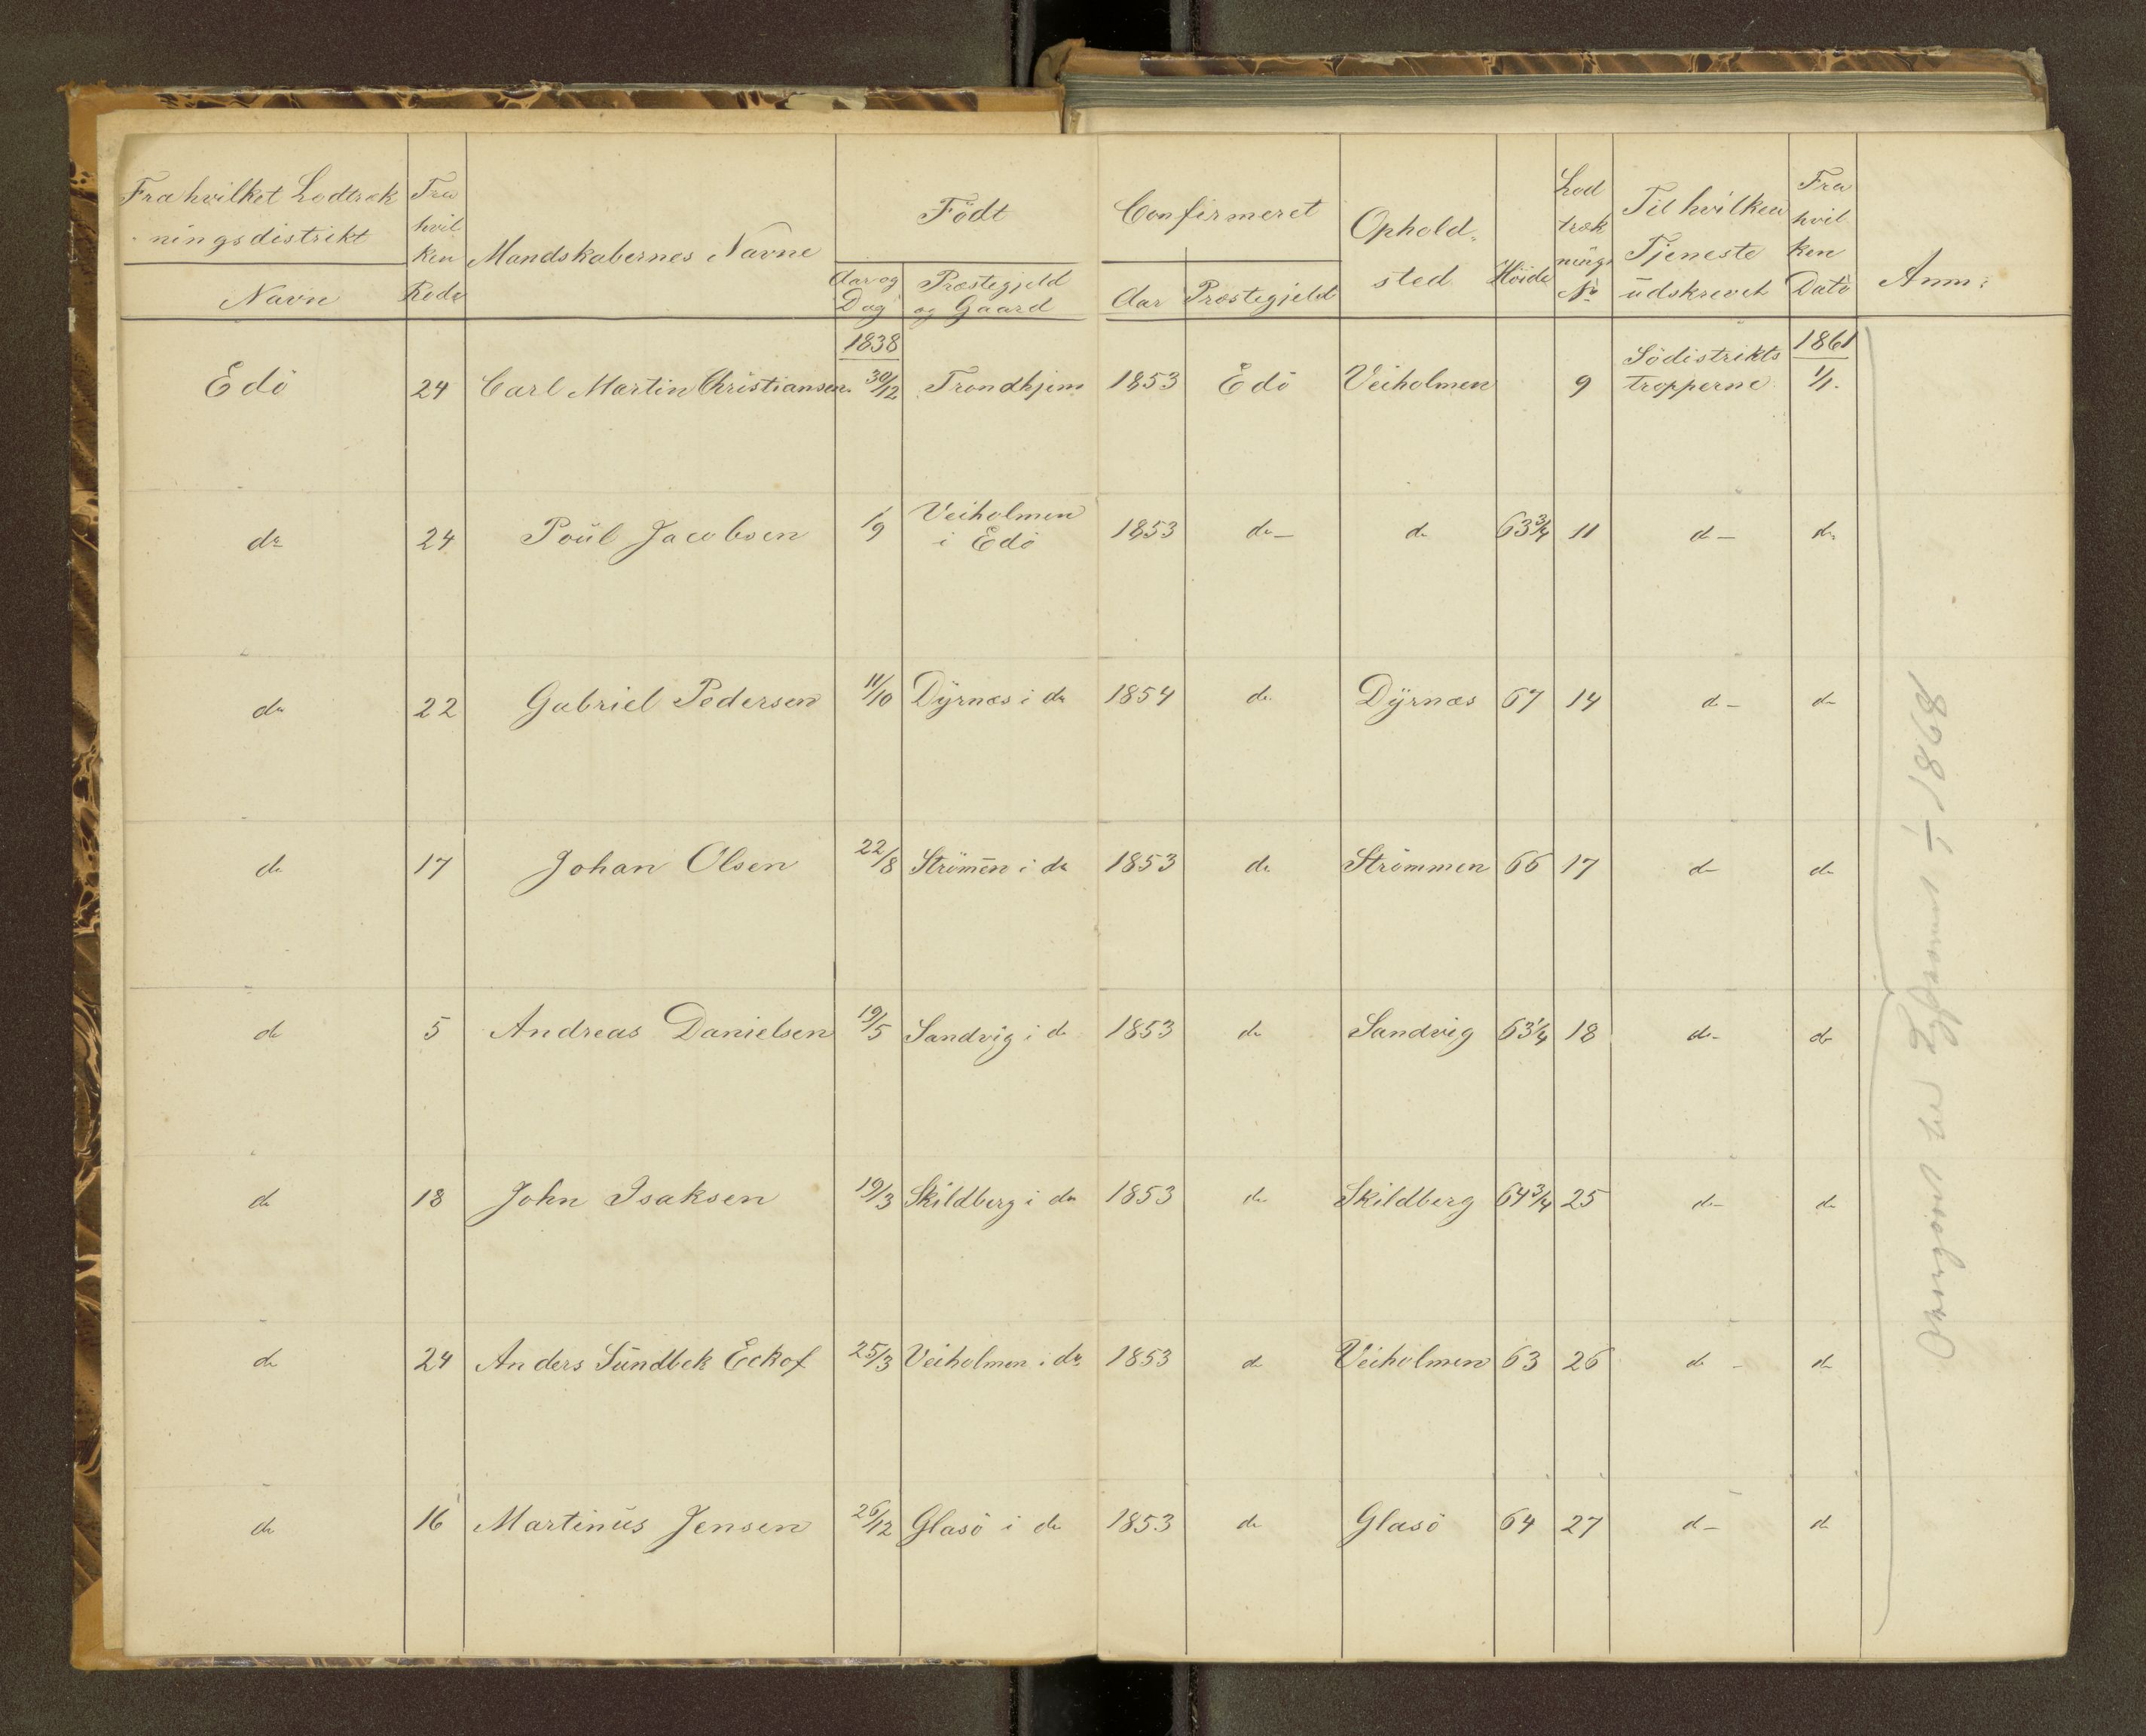 Fra hvilket Lodtræk
ningsdistrikt
Navn
Fra
hvil
ken
Rode
Mandskabernes Navne
Födt
Aar og
Dag
Præstegjeld
og Gaard
Confirmeret
Aar
Præstegjeld
Ophold-
sted
Höide
Lod
træk
nings
No
Til hvilken
Tjeneste
udskrevet
Fra
hvil
ken
Dato
Anm:
1838
1861
Edö 24 Carl Martin Christiansen 30/12 Trondhjem 1853 Edö Veiholmen 9 Södistrikts
tropperne 1/1.
do 24 Poul Jacobsen 1/9 Veiholmen
i Edö 1853 do- do 63 3/4 11 do- do
do 22 Gabriel Pedersen 11/10 Dyrnæs i do 1854 do Dyrnæs 67 14 do- do
do 17 Johan Olsen 22/8 Strömen i do 1853 do Strömmen 66 17 do do
do 5 Andreas Danielsen 19/5 Sandvig i do 1853 do Sandvig 63 1/4 18 do- do
do 18 John Isaksen 19/3 Skildberg i do 1853 do Skildberg 64 3/4 25 do- do
do 24 Anders Sundbek Eckof 25/3 Veiholmen i do 1853 do Veiholmen 63 26 do - do
do 16 Martinus Jensen 26/12 Glasö i do 1853 do Glasö 64 27 do- do
1/1 1868